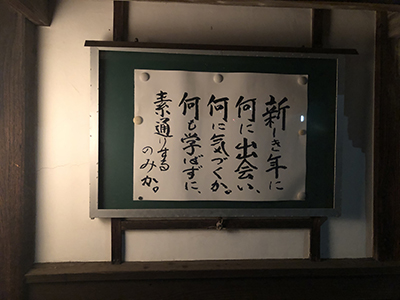 新しき年に
何に出会い、
何に気づくか。
何も学ばずに、
素通りする
のみか。